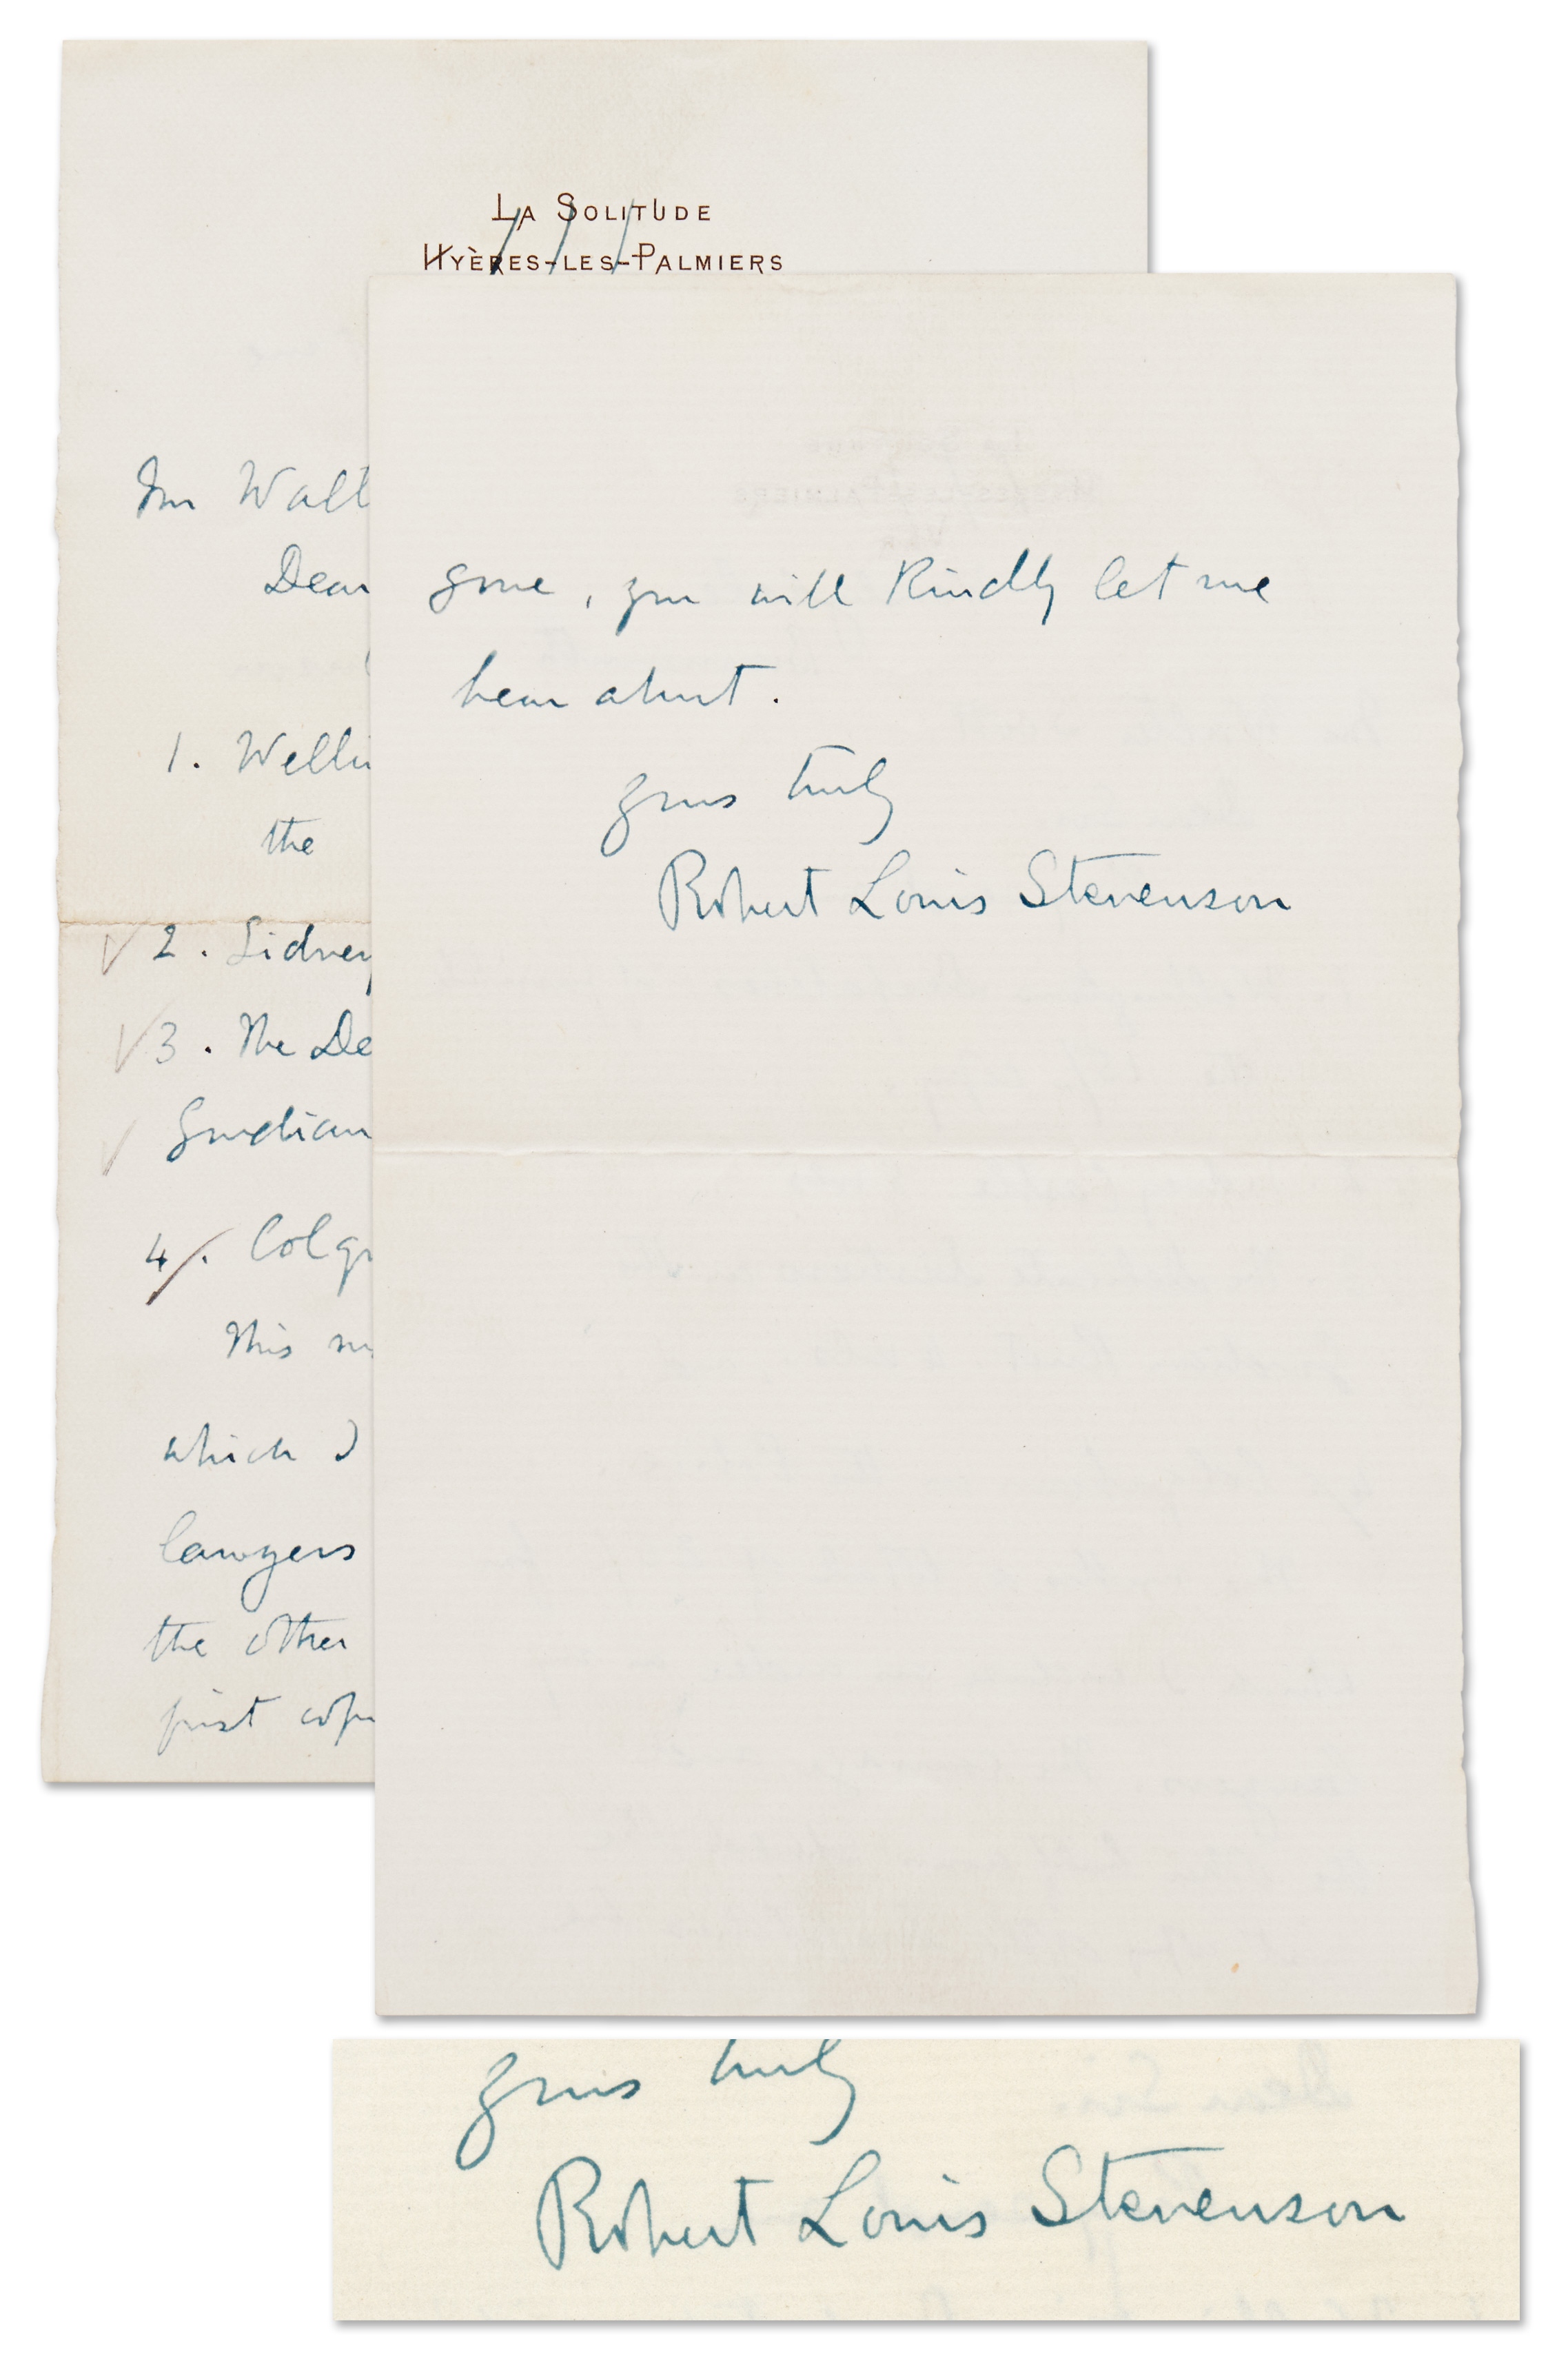 LA SOLITUDE
HYÈRES-LES-PALMIERS
Mr Walt
Dear
1. Wellin
the
2. Sidney
3. The De
4. Colq
This
which I
lawyers
the other
first cop
gone, you will kindly let me
hear about.
yours truly
Robert Louis Stevenson
yours truly
Robert Louis Stevenson